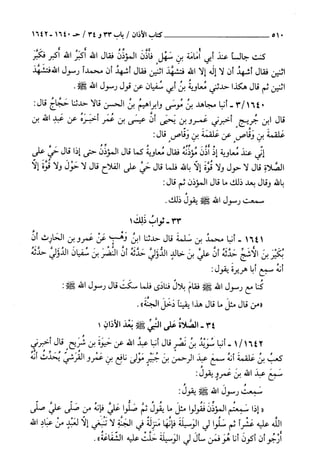 ٥١٠ كتاب الأذان / باب ٣٣ و ٣٤ / ح ١٦٤٠ - ١٦٤٢
كنت جالساً عند أبي أمامة بن سهل فأذن المؤذن فقال الله أكبر الله أكبر فكبر
اثنين فقال أشهد أن لا إله إلا الله فتشهد اثنين فقال أشهد أن محمداً رسول الله فتشهد
اثنين ثم قال هكذا حدثني معاوية بن أبي سفيان عن قول رسول الله ﷺ.
٣/١٦٤٠ - أنبا مجاهد بن موسى وإبراهيم بن الحسن قالا حدثنا حجاج قال:
قال ابن جريج أخبرني عمرو بن يحيى أن عيسى بن عمر أخبره عن عبد الله بن
علقمة بن وقاص عن علقمة بن وقاص قال:
إني عند معاوية إذ أذن مؤذنه فقال معاوية كما قال المؤذن حتى إذا قال حي على
الصلاة قال لا حول ولا قوة إلا بالله فلما قال حي على الفلاح قال لا حول ولا قوة إلا
بالله وقال بعد ذلك ما قال المؤذن ثم قال:
سمعت رسول الله ﷺ يقول ذلك.
٣٣ - ثواب ذلك١
١٦٤١ - أنبا محمد بن سلمة قال حدثنا ابن وهب عن عمرو بن الحارث أن
بكير بن الأشج حدثه أن علي بن خالد الدؤلي حدثه أن النضر بن سفيان الدؤلي حدثه
أنه سمع أبا هريرة يقول:
كنا مع رسول الله ﷺ فقام بلال فنادى فلما سكت قال رسول الله ﷺ:
«من قال مثل ما قال هذا يقيناً دخل الجنة».
٣٤ - الصلاة على النبي ﷺ بعد الأذان ١
١/١٦٤٢ - أنبا سويد بن نصر قال أنبا عبد الله عن حيوة بن شريح قال أخبرني
كعب بن علقمة أنه سمع عبد الرحمن بن جبير مولى نافع بن عمرو القرشي يحدث أنه
سمع عبد الله بن عمرو يقول:
سمعت رسول الله ﷺ يقول:
«إذا سمعتم المؤذن فقولوا مثل ما يقول ثم صلوا علي فإنه من صلى علي صلى
الله عليه عشراً ثم سلوا لي الوسيلة فإنها منزلة في الجنة لا تنبغي إلا لعبد من عباد الله
أرجو أن أكون أنا هو فمن سأل لي الوسيلة حلت عليه الشفاعة».